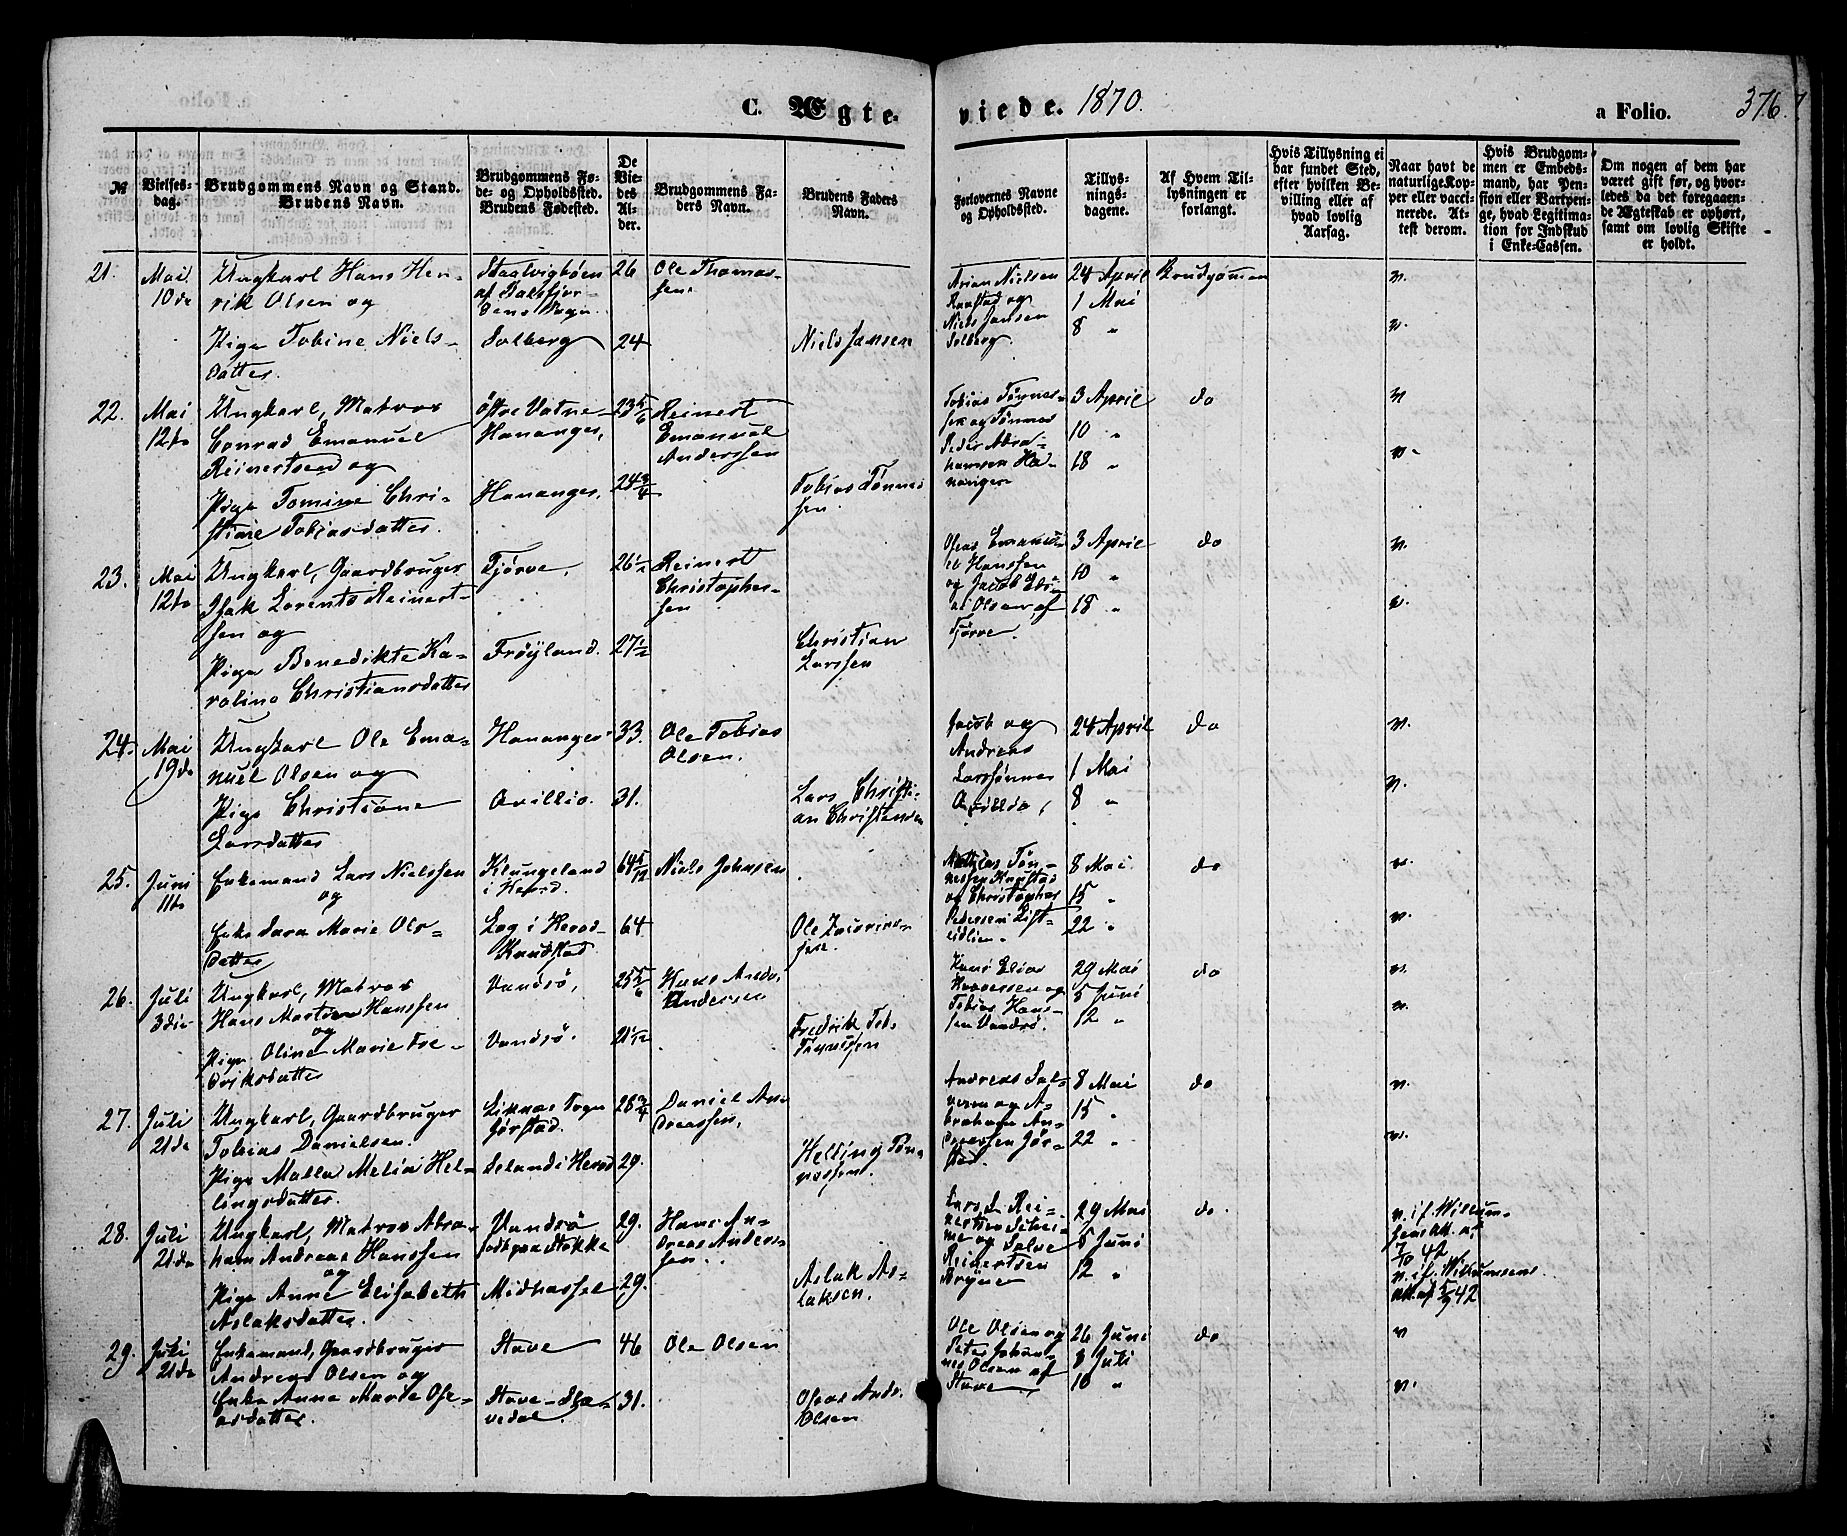 C. Ægte
viede. 1870.
a Folio. 376.
№
Vielses-
dag.
Brudgommens Navn og Stand.
Brudens Navn.
Brudgommens Fø-
de- og Opholdssted.
Brudens Fødested.
De
Vie-
des
Al-
der.
Brudgommens Fa-
ders Navn.
Brudens Faders
Navn.
Forlovernes Navne
og Opholdssted.
Tillys-
nings-
dagene.
Af Hvem Til-
lysningen er
forlangt.
Hvis Tillysning ei
har fundet Sted,
efter hvilken Be-
villing eller af
hvad lovlig
Aarsag.
Naar havt de
naturlige Kop-
per eller vacci-
nerede. At-
test derom.
Hvis Brudgom-
men er Embeds-
mand, har Pen-
sion eller Vartpen-
ge, hvad Legitima-
tion for Indskud
i Enke-Cassen.
Om nogen af dem har
været gift før, og hvor-
ledes da det foregaaen-
de Ægteskab er ophørt,
samt om lovlig Skifte
er holdt.
21.
Mai
10de
Ungkarl Hans Hen-
rik Olsen og
Pige Tobine Niels-
datter.
af Dalsfjor-
dens Sogn.
Solberg
26
24
Ole Thomas-
sen.
Niels Jansen
Arian Nielsen
og
Niels Jansen
Solberg
24 April
1 Mai
8 "
Brudgommen
v.
v.
22.
Mai
12te
Ungkarl, Matros
Conrad Emanuel
Reinertsen og
Pige Tomine Chri-
stine Tobiasdatter.
Østre Vatne-
Hananger,
Hananger.
23 5/6
24 3/4
Reinert
Emanuel
Anderssen
Tobias Tønnes-
sen.
Tobias Tønnes-
sen og Tønnes
Peder Abra-
hamsen Ha-
nanger
3 April
10 "
18 "
do
v
v.
23.
Mai
12te
Ungkarl, Gaardbruger
Isak Lorents Reinert-
sen og
Pige Benedikte Ka-
roline Christiansdatter
Tjørve,
Frøyland.
26 1/2
27 1/2
Reinert
Christophers-
sen
Christian
Larssen
Oseas Emanu-
el Hanssen
og Jacob
Olsen af
Tjørve.
3 April
10 "
18 "
do
v.
v.
24.
Mai
19de
Ungkarl Ole Ema-
nuel Olsen og
Pige Christiane
Larsdatter
Hananger
Ovillio.
33.
31.
Ole Tobias
Olsen.
Lars Christi-
an Christensen
Jacob og
Andreas
Larssønner
24 April
1 Mai
8 "
do
v.
v.
25.
Juni
11te
Enkemand Lars Nielssen
og
Enke Sara Marie Ols-
datter
Klungeland
i Herred.
Log i Herred-
Knudstad
64 5/12
64
Niels Johnsen
Ole
sen.
Mathias Tøn-
nessen Knustad
og Christopher
Pederssen List-
eidlien.
8 Mai.
15 "
22 "
do
v.
v.
26.
Juli
3die
Ungkarl, Matros
Hans Martin Hanssen
og
Pige Oline Marie Fre-
driksdatter
Vandsø,
Vandsø.
25 5/6
21 1/12
Hans
Anderssen
Fredrik
Hans Elias
og
Tobias Hans-
sen Vandsø.
29 Mai
5 Juni
12 "
do
v.
v.
27.
Juli
21de
Ungkarl, Gaardbruger
Tobias Danielsen.
Pige Malla Melia Hel-
lingsdatter.
Liknes Sogn
Jørstad.
Seland i Herred
28 3/4
29.
Daniel An-
dreassen,
Helling Tøn-
nessen.
Andreas Sal-
vesen og A-
braham An-
dreassen Jør-
stad.
8 Mai
15 "
22 "
do
v.
v.
28.
Juli
21de
Ungkarl, Matros Abra-
ham Andreas Hanssen
og
Pige Anne Elisabeth
Aslaksdatter
Vandsø
født paa Stokke
Midhassel
29.
29.
Hans An-
dreas Anders-
sen.
Aslak As-
laksen.
Lars L. Rei-
nertsen
og Salve
Reinertsen
Bryne
29 Mai
5 Juni
12 "
do.
v. if. Wisum-
sens Att. af
7/10 42
v. if. Wisumsens
Att. af 5/9 42
29.
Juli
21de
Enkemand, Gaardbruger
Andreas Olsen og
Enke Anne Marie Ose-
asdatter.
Stave
Stave-
46
31.
Ole Olsen
Oseas Ands.
Olsen
Ole Olsen og
Peter Johan-
nes Olsen af
Stave
26 Juni
3 Juli
10 "
do
v
v.